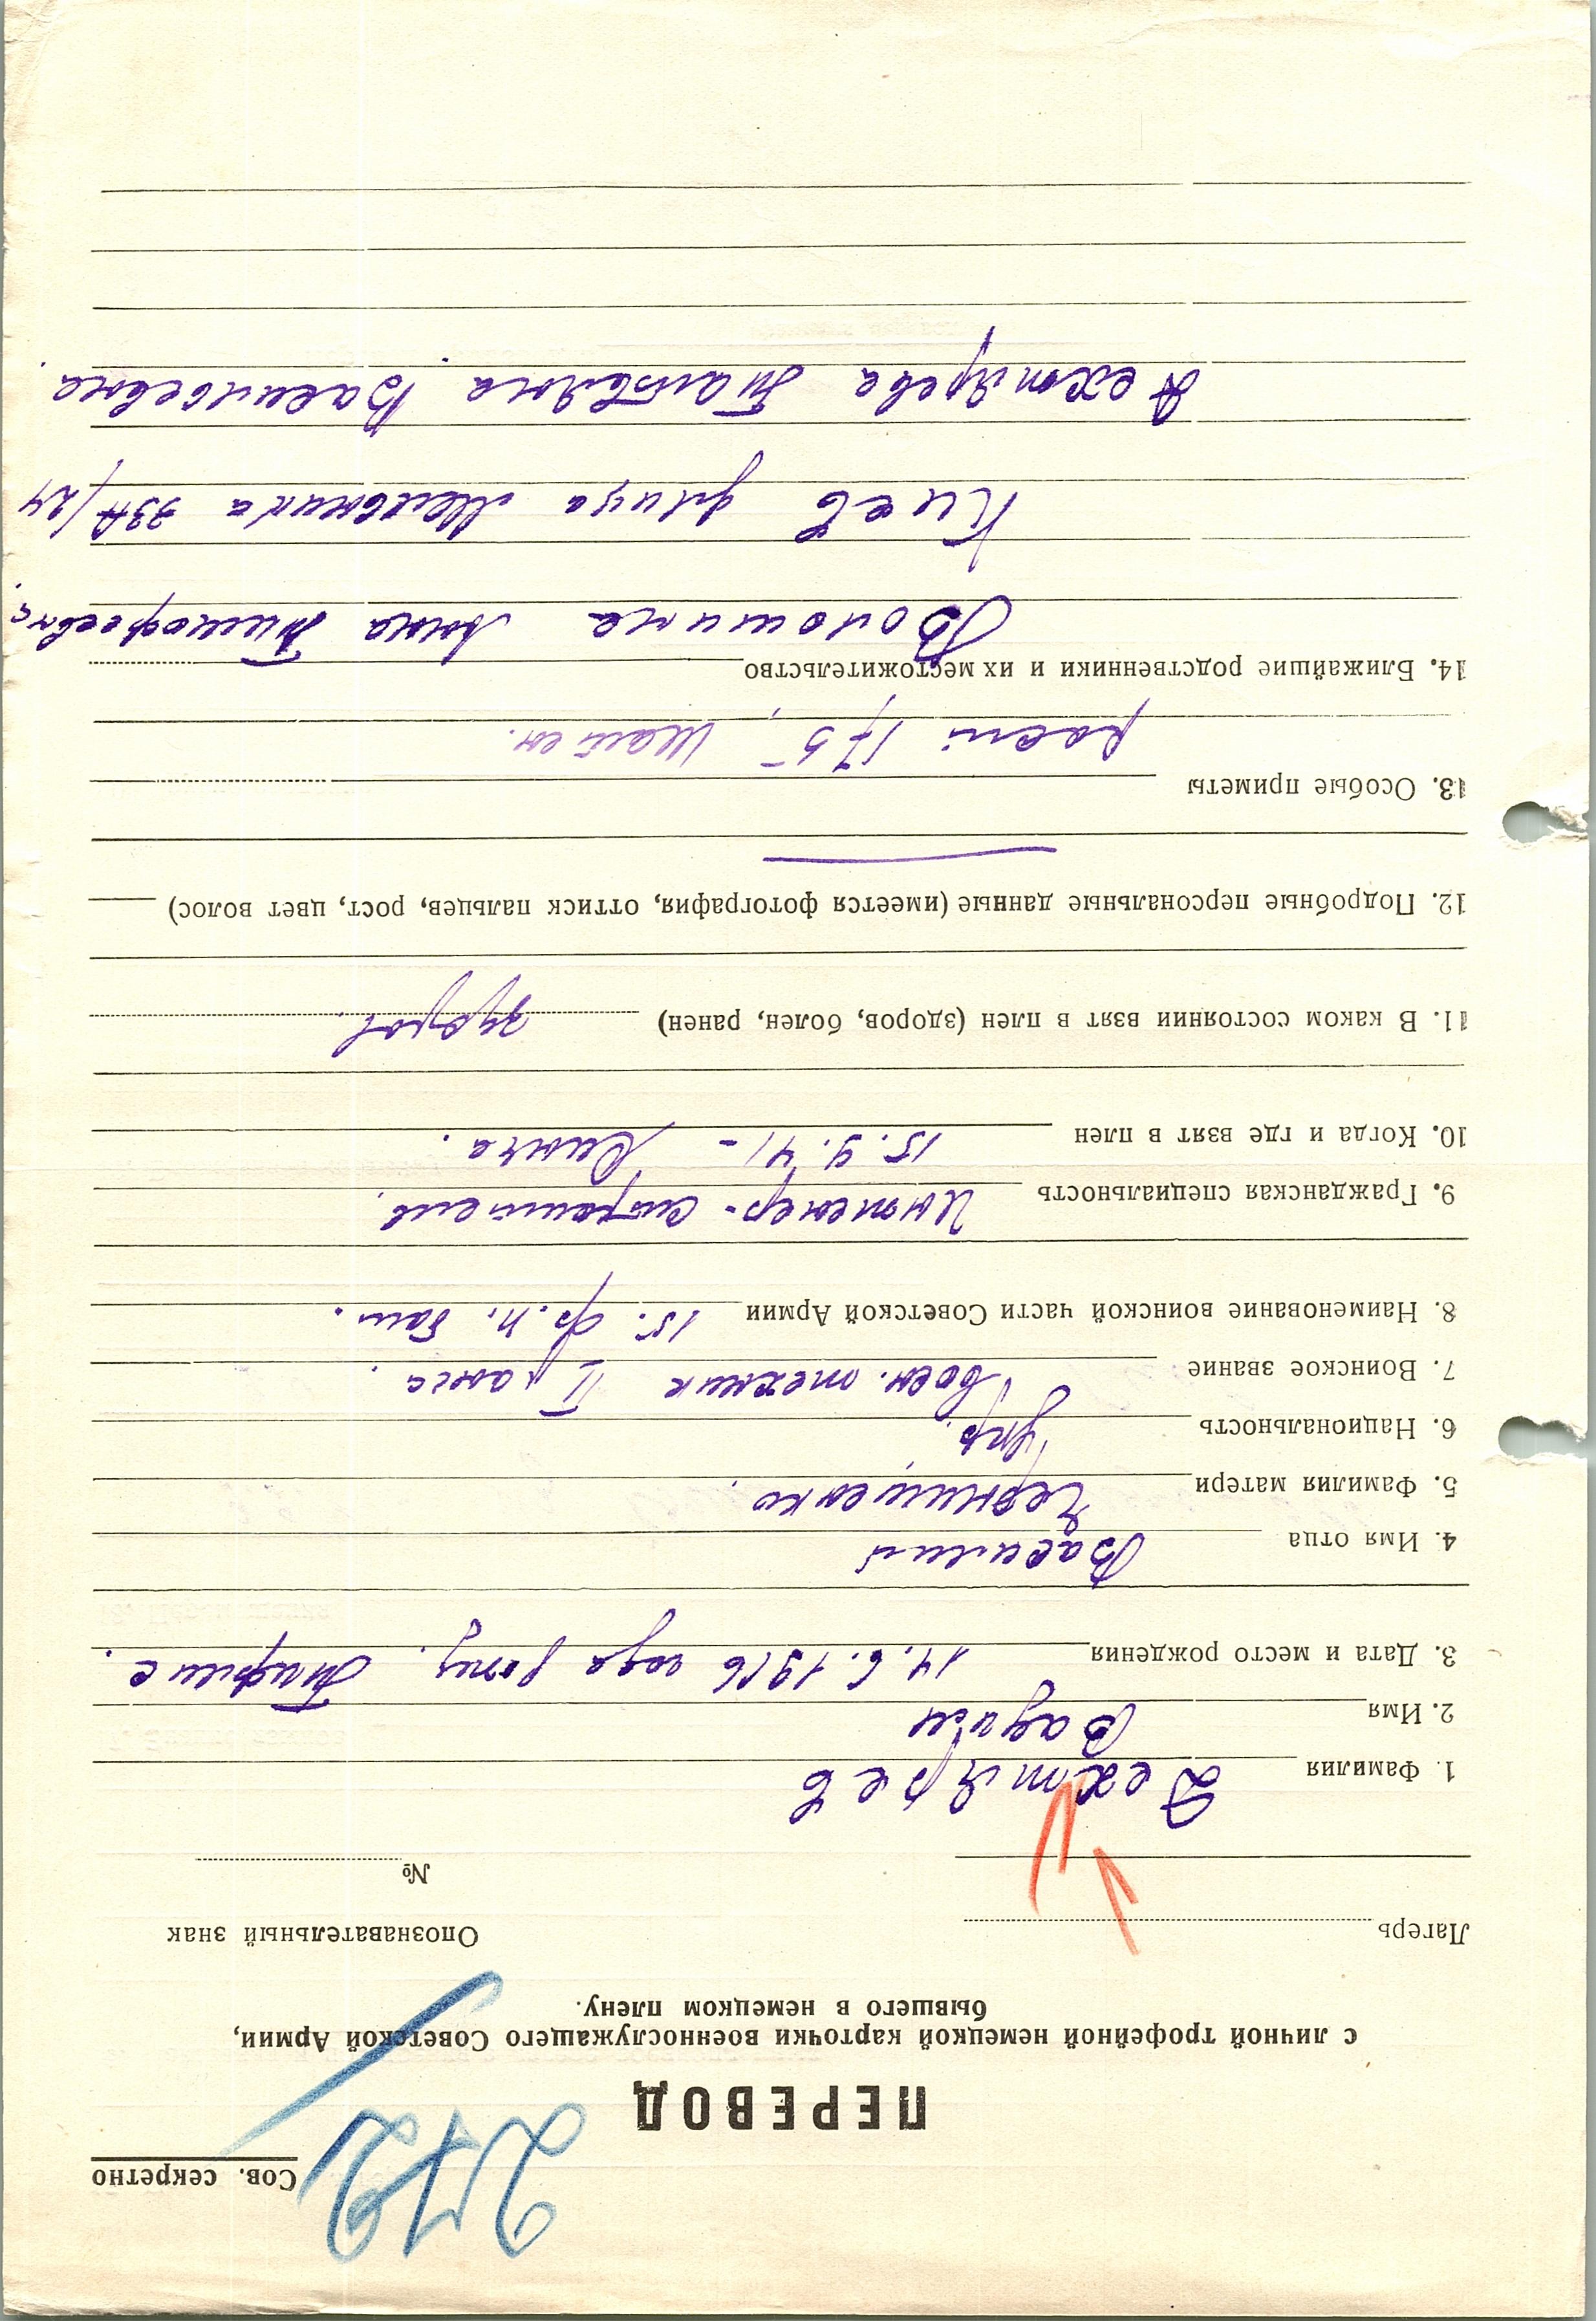 Сов. секретно
272
ПЕРЕВОД
с личной трофейной немецкой карточки военнослужащего Советской Армии,
бывшего в немецком плену.
Лагерь
Опознавательный знак
№
1. Фамилия Дехтярев
2. Имя Вадим
3. Дата и место рождения 14.6.1916 года рожд. Тифлис.
4. Имя отца Василий
5. Фамилия матери Чернишенко.
6. Национальность Укр.
7. Воинское звание Воен. техник II ранга.
8. Наименование воинской части Советской Армии 15. ф.п. бат.
9. Гражданская специальность Инженер-строитель.
10. Когда и где взят в плен 15.9.41 –
11. В каком состоянии взят в плен (здоров, болен, ранен) здоров.
12. Подробные персональные данные (имеется фотография, оттиск пальцев, рост, цвет волос)
13. Особые приметы
рост 175, шатен.
14. Ближайшие родственники и их местожительство
Волошина Анна Тимофеевна,
Киев улица Мельника 73А/24
Дехтярева Татьяна Васильевна.